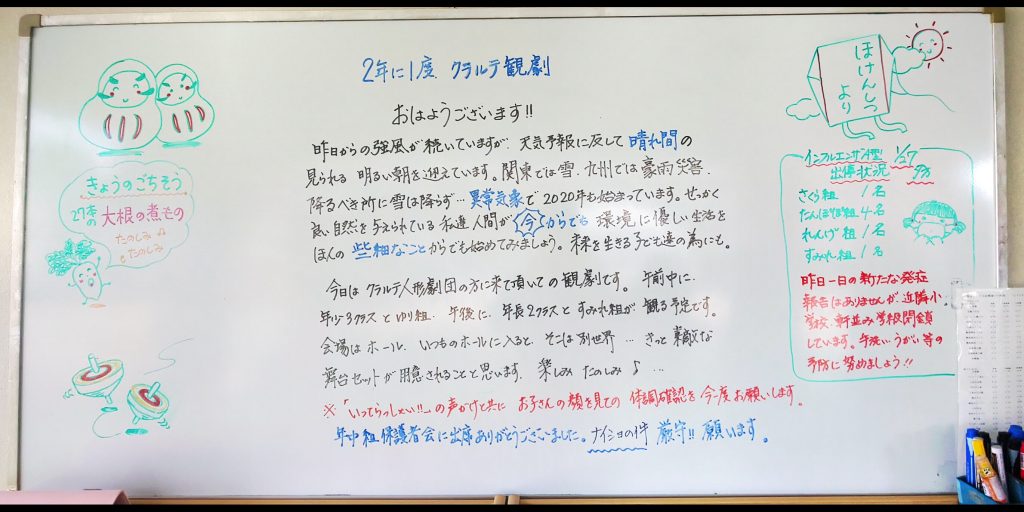 2年に1度 クラルテ観劇
おはようございます!!
昨日からの強風が続いていますが、天気予報に反して晴れ間の
見られる 明るい朝を迎えています。関東では雪、九州では豪雨災害、
降るべき所に雪は降らず…異常気象で2020年も始まっています。せっかく
良い自然を与えられている私達人間が今からでも環境に優しい生活を
ほんの些細なことからでも始めてみましょう。未来を生きる子ども達の為にも。
今日はクラルテ人形劇団の方に来て頂いての観劇です。午前中に、
年少3クラスとゆり組、午後に、年長2クラスとすみれ組が観る予定です。
会場はホール、いつものホールに入ると、そこは別世界…きっと素敵な
舞台セットが用意されることと思います。楽しみ たのしみ♪…
※「いってらっしゃい!!」の声がけと共に お子さんの顔を見ての 体調確認を今一度お願いします。
年中組保護者会に出席ありがとうございました。ナイショの件 厳守!! 願います。
きょうのごちそう
大根の煮もの
たのしみ♪
たのしみ
ほけんしつ
より
インフルエンザA型 1/27
出停状況
さくら組 1名
たんぽぽ組 4名
れんげ組 1名
すみれ組 1名
昨日一日の新たな発症
報告はありませんが、近隣小
学校、軒並み学級閉鎖
しています。手洗い、うがい等の
予防に努めましょう!!